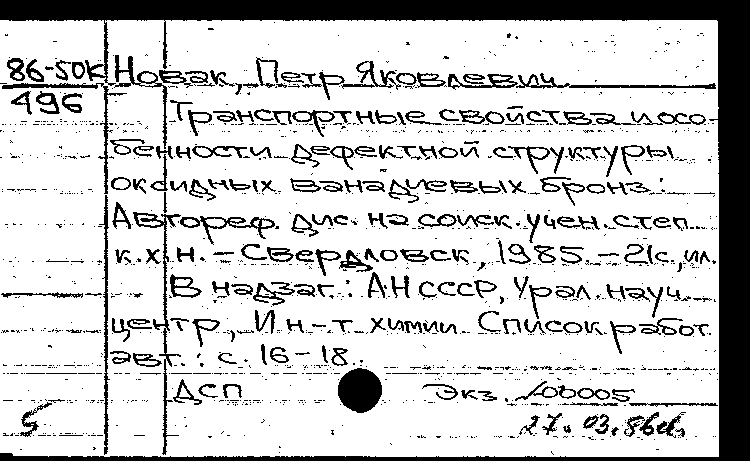 86-50к Новак, Петр Яковлевич.
496
Транспортные свойства и осо-
бенности дефектной структуры
оксидных ванадиевых бронз:
Автореф. дис. на соиск. учен. степ.
к.х.н. - Свердловск, 1985. - 21с., ил.
В надзаг.: АН СССР, Урал. науч.
центр, Ин-т химии. Список работ
авт.: с. 16-18.
ДСП Экз. №00005
5 27.03.86